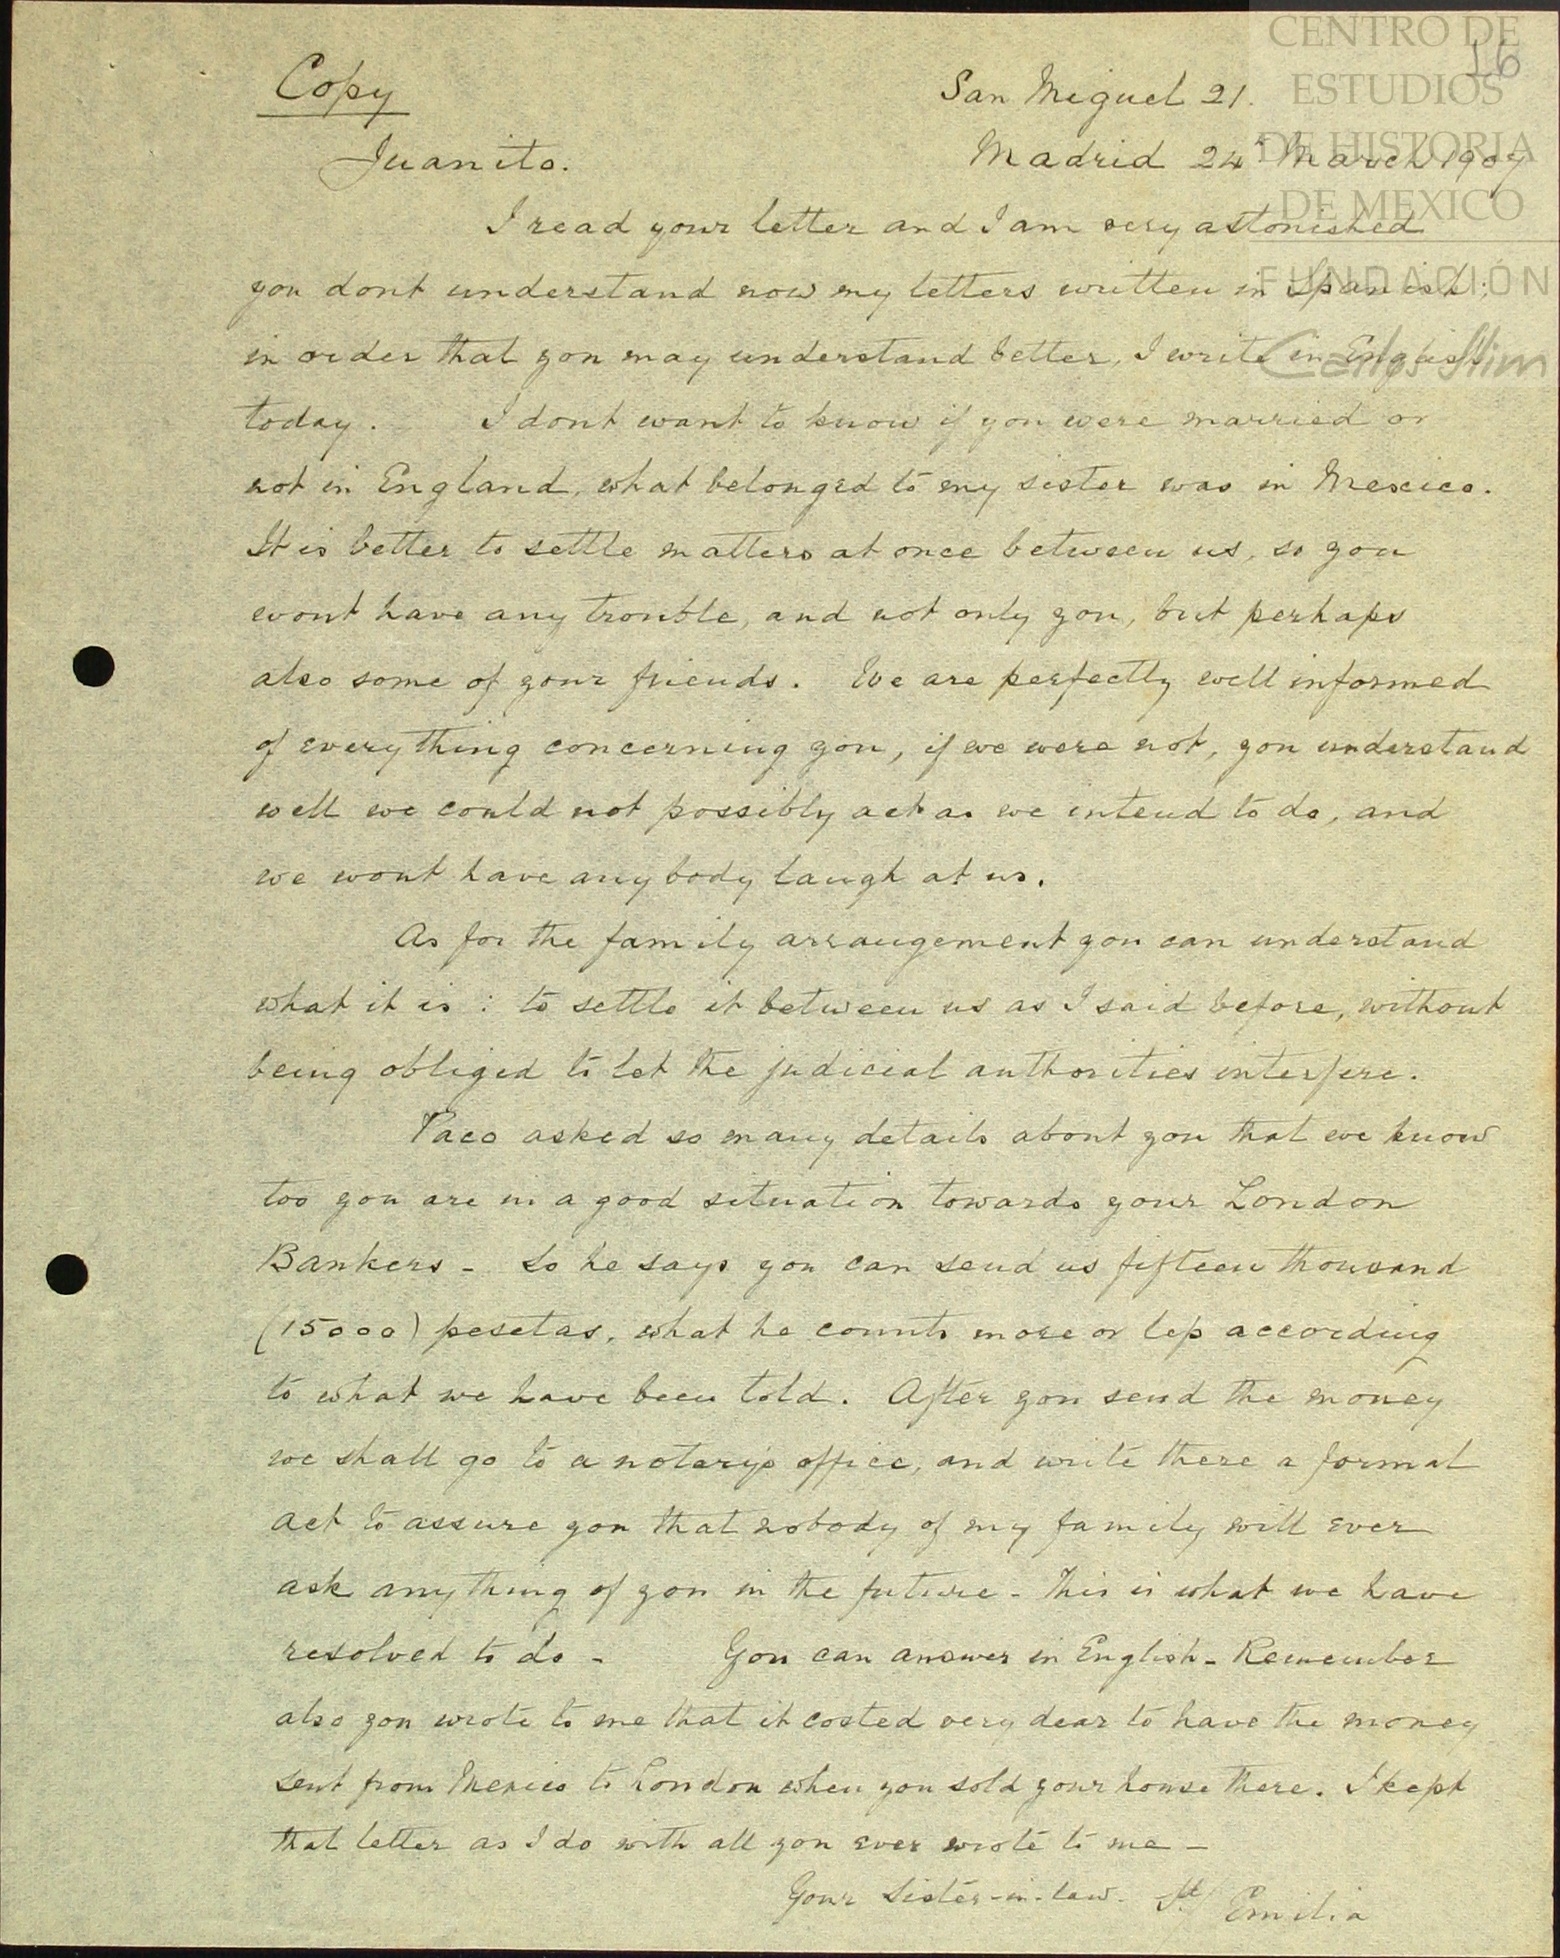 CENTRO DE
ESTUDIOS
DE HISTORIA
DE MEXICO
FUNDACIÓN
Carlos Slim
16
Copy
San Miguel 21.
Juanito.
Madrid 24th March 1907
I read your letter and I am very astonished
you dont understand now my letters written in Spanish;
in order that you may understand better, I write in English
today. I dont want to know if you were married or
not in England, what belonged to my sister was in Mexico.
It is better to settle matters at once between us, so you
wont have any trouble, and not only you, but perhaps
also some of your friends. We are perfectly well informed
of everything concerning you, if we were not, you understand
well we could not possibly act as we intend to do, and
we wont have any body laugh at us.
As for the family arrangement you can understand
what it is : to settle it between us as I said before, without
being obliged to let the judicial authorities interfere.
Paco asked so many details about you that we know
too you are in a good situation towards your London
Bankers - So he says you can send us fifteen thousand
(15000) pesetas, what he counts more or less according
to what we have been told. After you send the money
we shall go to a notary's office, and write there a formal
act to assure you that nobody of my family will ever
ask any thing of you in the future - This is what we have
resolved to do - You can answer in English - Remember
also you wrote to me that it costed very dear to have the money
sent from Mexico to London when you sold your house there. I kept
that letter as I do with all you ever wrote to me -
Your Sister-in-law. Sd/ Emilia